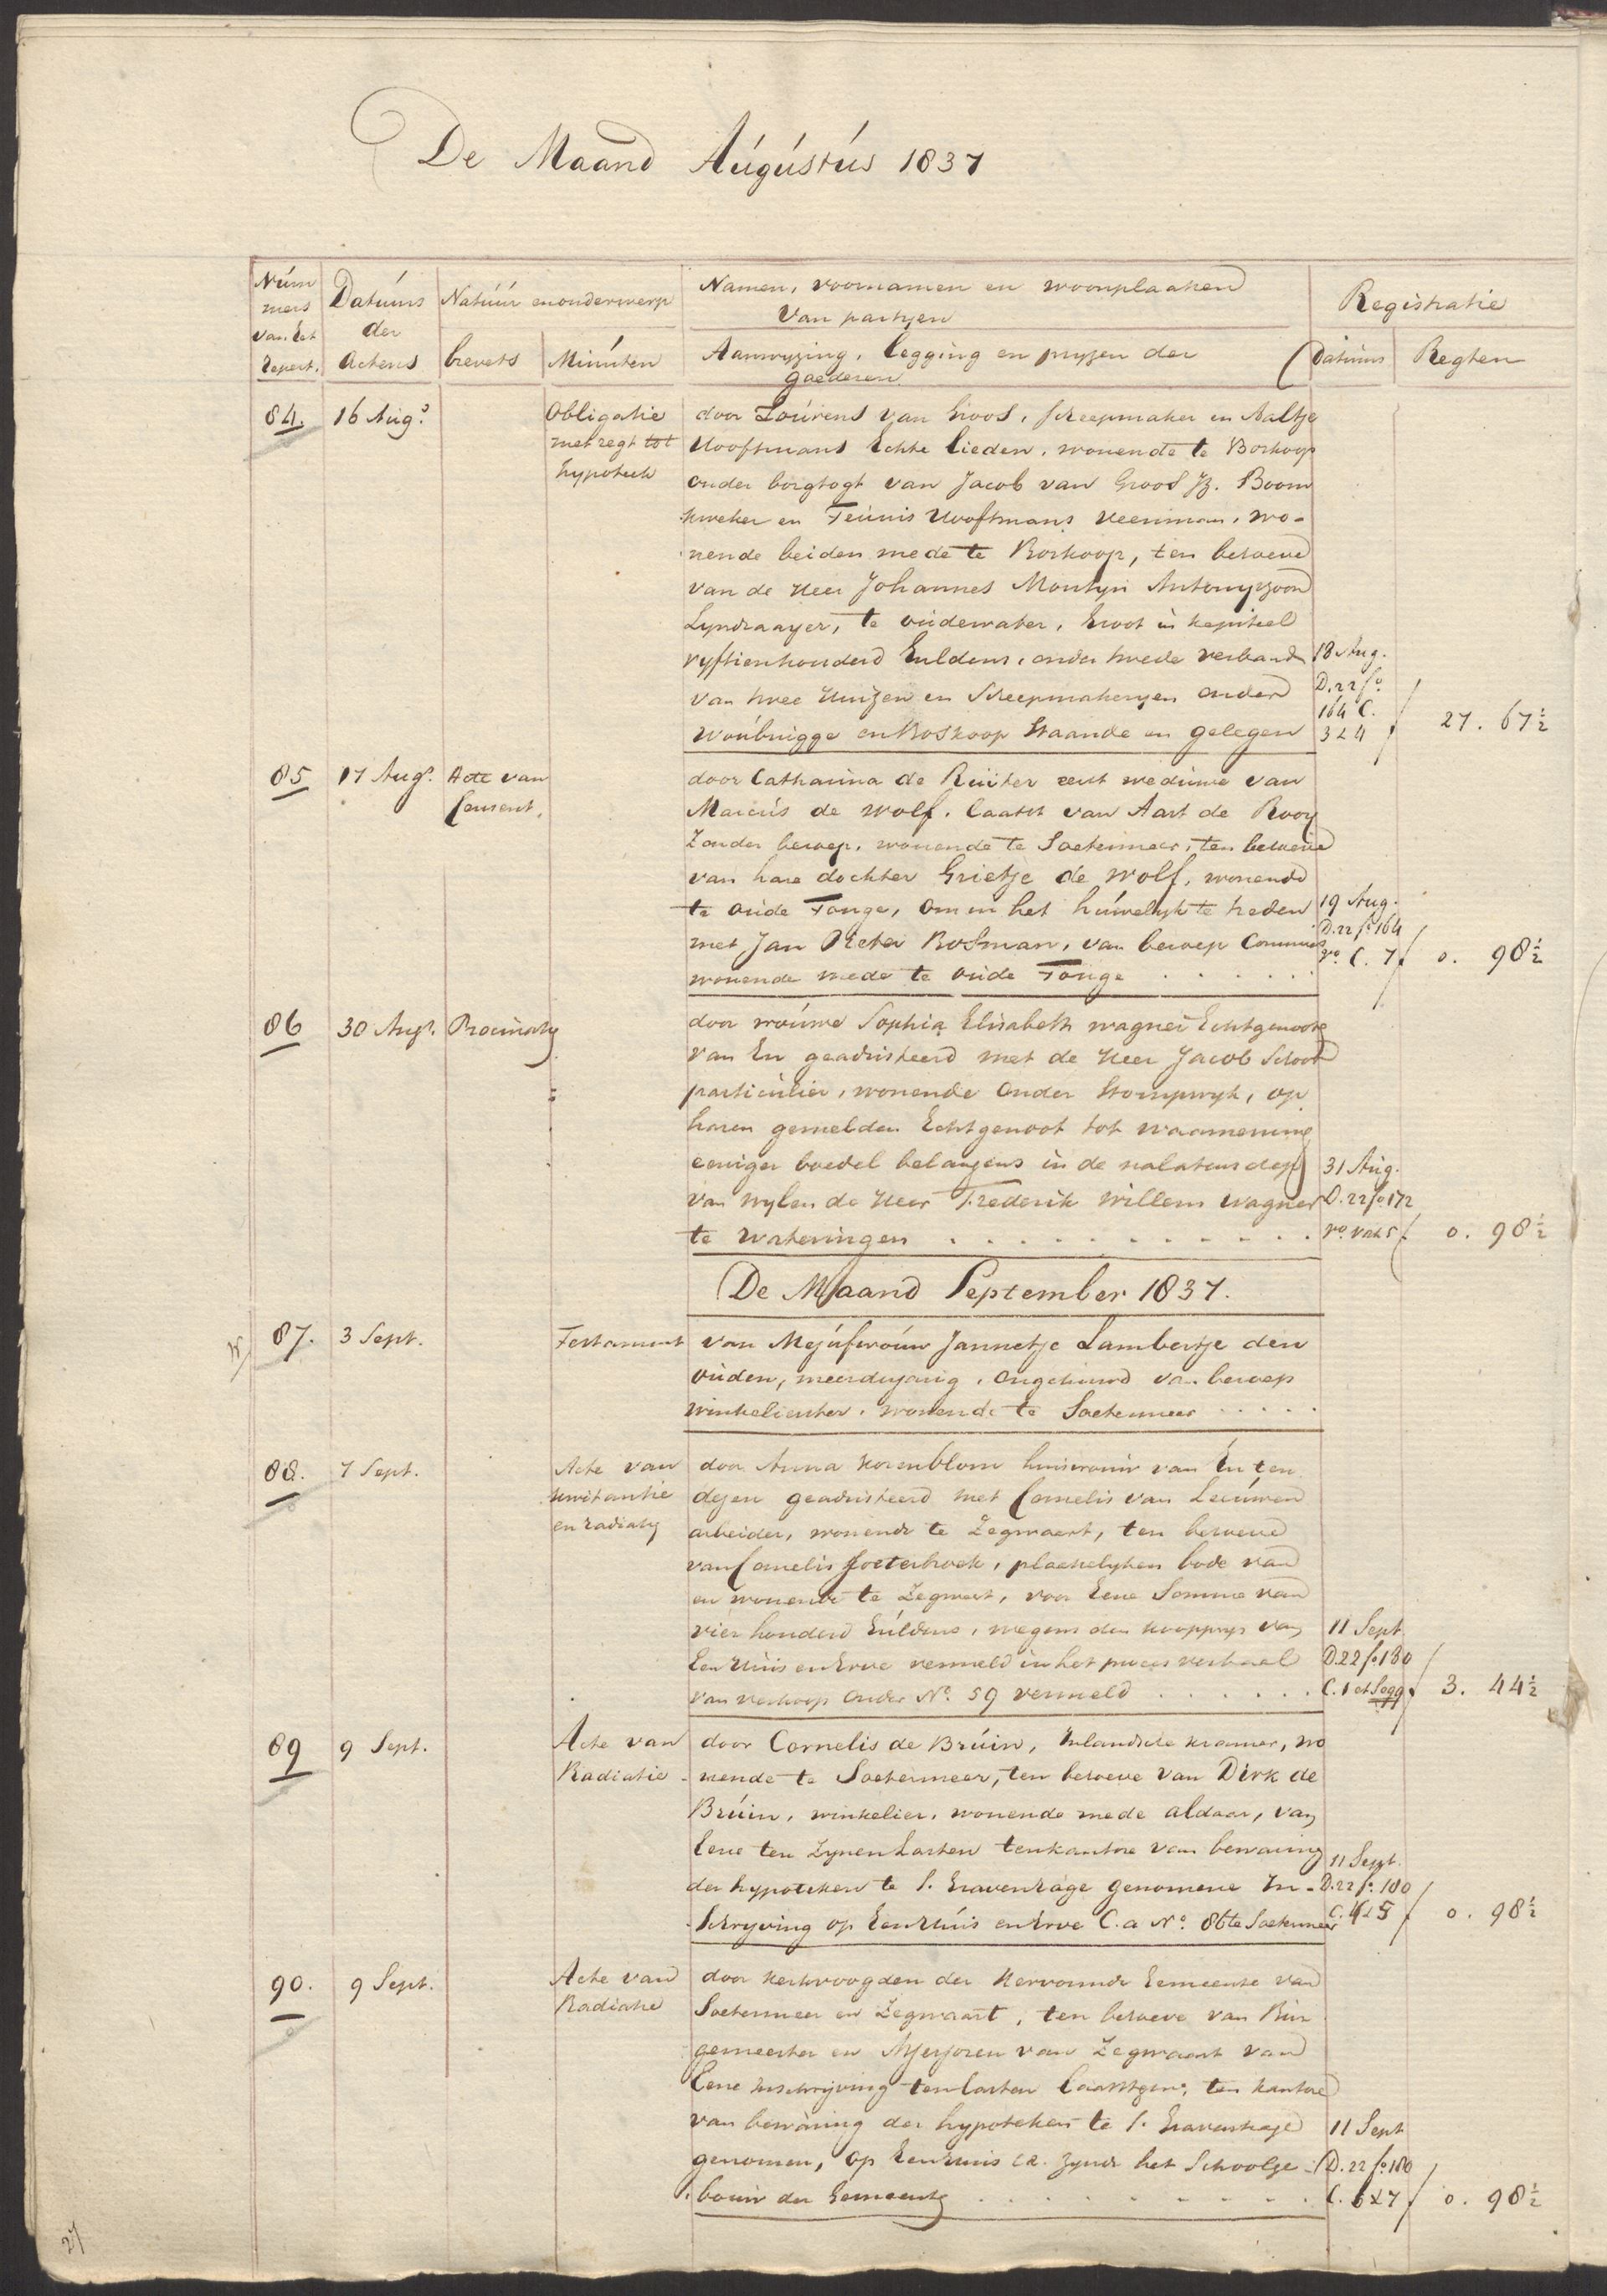 De Maand Aúgústús 1837
Núm
mers
van het
Repert.
Datúms
der
Actens
Natúúr en onderwerp
brevets
Minúten
Namen, voornamen en woonplaatsen
Van partijen
Aanwyzing, legging en pryzen der
goederen
Registratie
Datúms
Regten
84. 16 Aug.
Obligatie
met regt tot
hypoteek
door Loúrens van Groos, Scheepmaker en Aaltje
Hooftmans Echte lieden, wonende te Boskoop
onder borgtogt van Jacob van Groos Jz. Boom
kweker en Teúnis Hooftmans Veenman, wo-
nende beiden mede te Boskoop, ten behoeve
van de Heer Johannes Montyn Antonyzoon
Lyndraayer, te oúdewater, Groot in kapitaal
vyftienhonderd Guldens, onder mede verband
van twee Huizen en Scheepmakeryen onder
Woúbrúgge en Boskoop Staande en gelegen
18 Aug.
D. 22 fo.
164 C.
3 & 4
27. 67½
85 17 Augs. Acte van
Consent.
door Catharina de Rúiter eerst weduwe van
Marcús de Wolf, laatst van Aart de Rooy
Zonder beroep, wonende te Soetermeer, ten behoeve
van hare dochter Grietje de Wolf, wonende
te oúde Tonge, om in het húwelyk te treden
met Jan Pieter Bosman, van beroep Commies
wonende mede te oúde Tonge . . . . . .
19 Aug.
D. 22 fo 164
vo. C. 7.
0. 98½
86 30 Augs. Procúratij
door vroúwe Sophia Elisabeth Wagner Echtgenoote
van En geadsisteerd met de Heer Jacob Schoot
particúlier, wonende onder Stompwyk, op
haren gemelden Echtgenoot tot waarneming
eeniger boedel belangens in de nalatenschap
van wylen de Heer Frederik Willem Wagner
te Wateringen . . . . . . . . . . .
31 Aug.
D. 22 fo 172
vo. vak 5
0. 98½
De Maand September 1837.
87. 3 Sept.
Testament
van Mejúfvroúw Jannetje Lambertje den
oúden, meerderjarig, ongehúwd van beroep
winkelierster, wonende te Soetermeer . . . . .
88. 7 Sept.
Acte van
kwitantie
en radiatij
door Anna Korenblom huisvrouw van En ten
dezen geadsisteerd met Cornelis van Leeúwen
arbeider, wonende te Zegwaart, ten behoeve
van Cornelis Zoeterhoek, plaatselyken bode van
en wonende te Zegwaart, voor Eene Somme van
vier honderd Gúldens, wegens den kooppryz van
Een Húis en Erve vermeld in het proces verbaal
van verkoop onder No. 59 vermeld . . . . . .
11 Sept.
D. 22 fo 180
C. 1 et Seqq.
3. 44½
89 9 Sept.
Acte van
Radiatie
door Cornelis de Brúin, Inlandsche kramer, wo
nende te Soetermeer, ten behoeve van Dirk de
Brúin, winkelier, wonende mede aldaar, van
Eene ten Zynen Lasten ten kantore van bewaring
der hypotheken te S. Gravenhage genomene In-
Schryving op Een Húis en Erve C. a No. 86 te Soetermeer
11 Sept.
D. 22 fo. 180
C. 4 & 5
0. 98½
90. 9 Sept.
Acte van
Radiatie
door Kerkvoogden der Hervormde Gemeente van
Soetermeer en Zegwaart, ten behoeve van Bur
gemeester en Assessoren van Zegwaart van
Eene Inschrijving ten lasten laatstgem. ten kantore
van bewaring der hypotheken te S. Gravenhage
genomen, op Een Huis ca. Zynde het Schoolge-
bouw der Gemeente . . . . . . . . .
11 Sept
D. 22 fo 180
C. 6 & 7
0. 98½
27